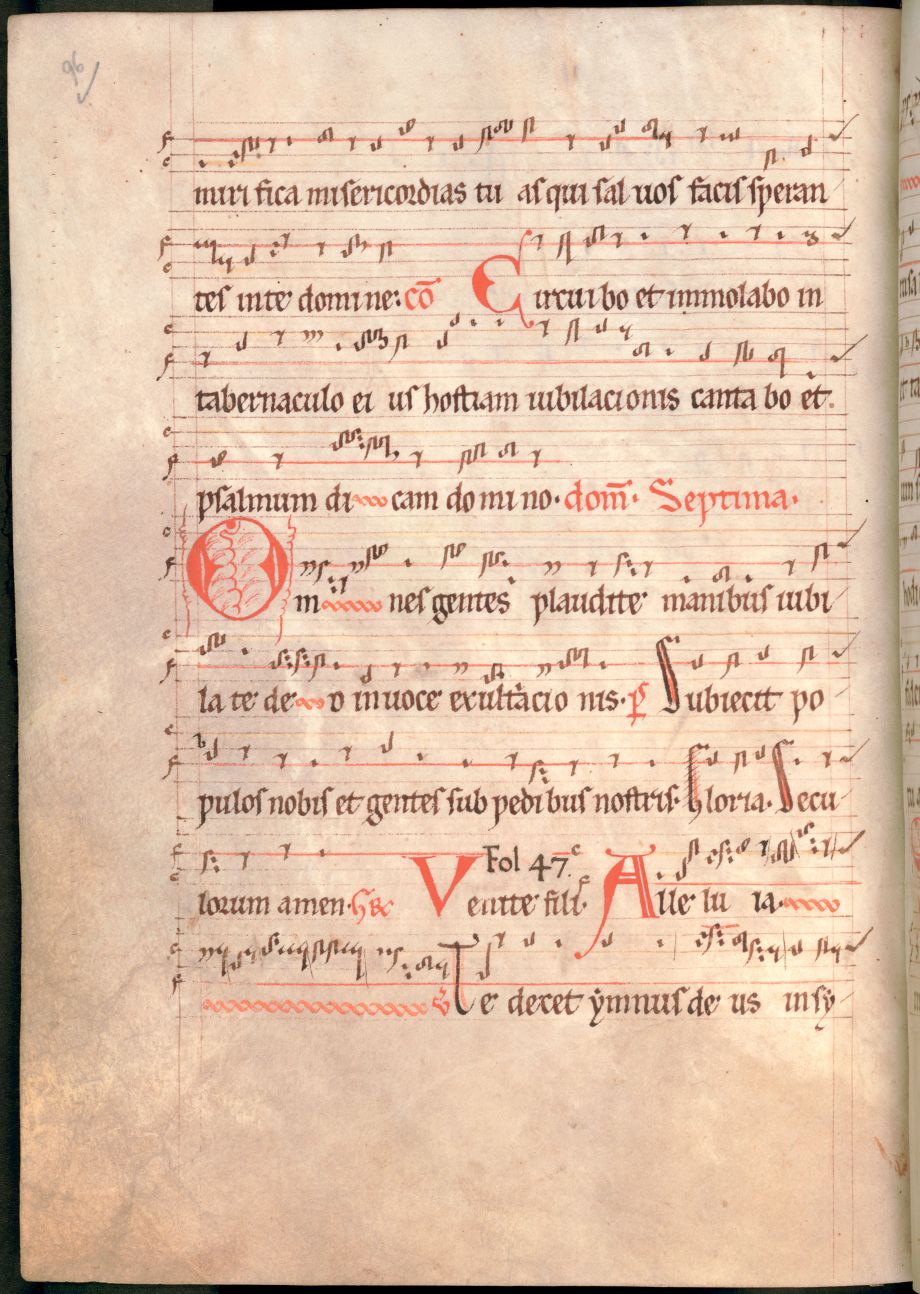 96
miri fica misericordias tu as qui sal uos facis speran
tes in te domine: cõ Circuibo et immolabo in
tabernaculo ei us hostiam iubilacionis canta bo et
psalmum di cam do mi no. dom̄. Septima.
Om nes gentes plaudite manibus iubi
la te de o in uoce exultacio nis. p̄s Subiecit po
pulos nobis et gentes sub pedibus nostris. Gloria. Secu
lorum amen. Gr̄ Venite fili. Fol 47. Alle lu ia.
v̄ Te decet ẏmnus de us in sẏ